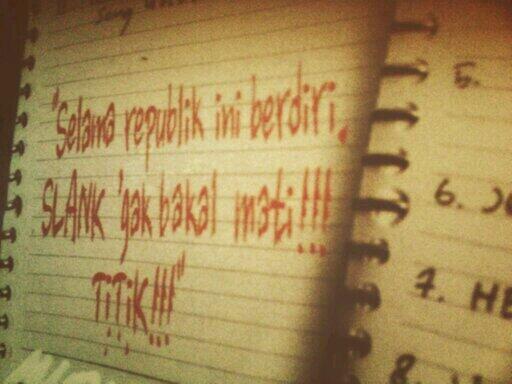 "Selama republik ini berdiri,
SLANK 'gak bakal mati!!!
TiTiK!!!"
5.
6.
7. HE
8.